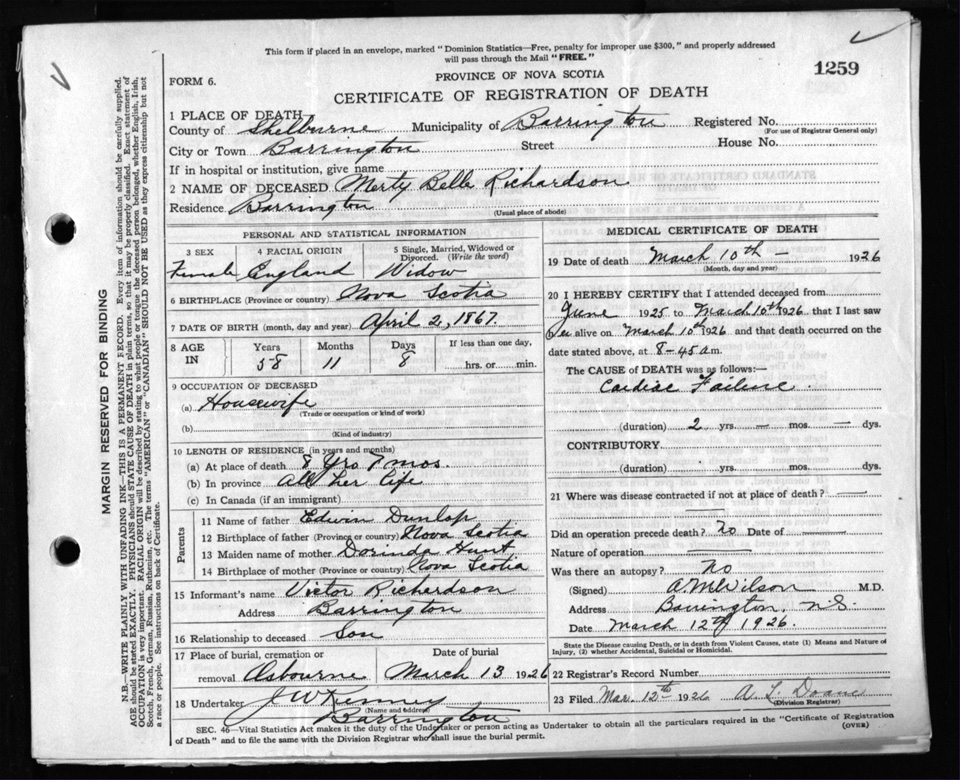 This form if placed in an envelope, marked "Dominion Statistics—Free, penalty for improper use $300," and properly addressed
will pass through the Mail "FREE."
1259
FORM 6.
PROVINCE OF NOVA SCOTIA
CERTIFICATE OF REGISTRATION OF DEATH
1 PLACE OF DEATH
County of Shelburne Municipality of Barrington Registered No.
(For use of Registrar General only)
City or Town Barrington Street House No.
If in hospital or institution, give name
2 NAME OF DECEASED Merty Belle Richardson
Residence Barrington
(Usual place of abode)
PERSONAL AND STATISTICAL INFORMATION
3 SEX 4 RACIAL ORIGIN 5 Single, Married, Widowed or Divorced. (Write the word)
Female England Widow
6 BIRTHPLACE (Province or country) Nova Scotia
7 DATE OF BIRTH (month, day and year) April 2, 1867.
8 AGE IN Years Months Days If less than one day,
58 11 8 hrs. or min.
9 OCCUPATION OF DECEASED
(a) Housewife
(Trade or occupation or kind of work)
(b)
(Kind of industry)
10 LENGTH OF RESIDENCE (in years and months)
(a) At place of death 8 Yrs 7 mos.
(b) In province All her life
(c) In Canada (if an immigrant)
Parents
11 Name of father Edwin Dunlop
12 Birthplace of father (Province or country) Nova Scotia
13 Maiden name of mother Dorinda Hunt
14 Birthplace of mother (Province or country) Nova Scotia
15 Informant's name Victor Richardson
Address Barrington
16 Relationship to deceased Son
17 Place of burial, cremation or removal Date of burial
Osbourne March 13 1926
18 Undertaker J W Kenney
(Name and address)
Barrington
MEDICAL CERTIFICATE OF DEATH
19 Date of death March 10th — 1926
(Month, day and year)
20 I HEREBY CERTIFY that I attended deceased from
June 1925 to March 10th 1926 that I last saw
her alive on March 10th 1926 and that death occurred on the
date stated above, at 8-45 a m.
The CAUSE OF DEATH was as follows:—
Cardiac Failure.
(duration) 2 yrs. — mos. — dys.
CONTRIBUTORY.
(duration) yrs. mos. dys.
21 Where was disease contracted if not at place of death? —
Did an operation precede death? No Date of —
Nature of operation
Was there an autopsy? No
(Signed) A.M. Wilson M.D.
Address Barrington, N.S.
Date March 12th 1926.
State the Disease causing Death, or in death from Violent Causes, state (1) Means and Nature of
Injury, (2) whether Accidental, Suicidal or Homicidal.
22 Registrar's Record Number
23 Filed Mar. 12th 1926 A. L. Doane
(Division Registrar)
SEC. 46—Vital Statistics Act makes it the duty of the Undertaker or person acting as Undertaker to obtain all the particulars required in the "Certificate of Registration
of Death" and to file the same with the Division Registrar who shall issue the burial permit.
(OVER)
MARGIN RESERVED FOR BINDING
N.B.—WRITE PLAINLY WITH UNFADING INK—THIS IS A PERMANENT RECORD. Every item of information should be carefully supplied.
AGE should be stated EXACTLY. PHYSICIANS should STATE CAUSE OF DEATH in plain terms, so that it may be properly classified. Exact statement of
OCCUPATION is very important. RACIAL ORIGIN will be described by stating to what people or tongue the deceased person belonged, whether English, Irish,
Scotch, French, German, Russian, Ruthenian, etc. The terms "AMERICAN" or "CANADIAN" SHOULD NOT BE USED as they express citizenship but not
a race or people. See instructions on back of Certificate.